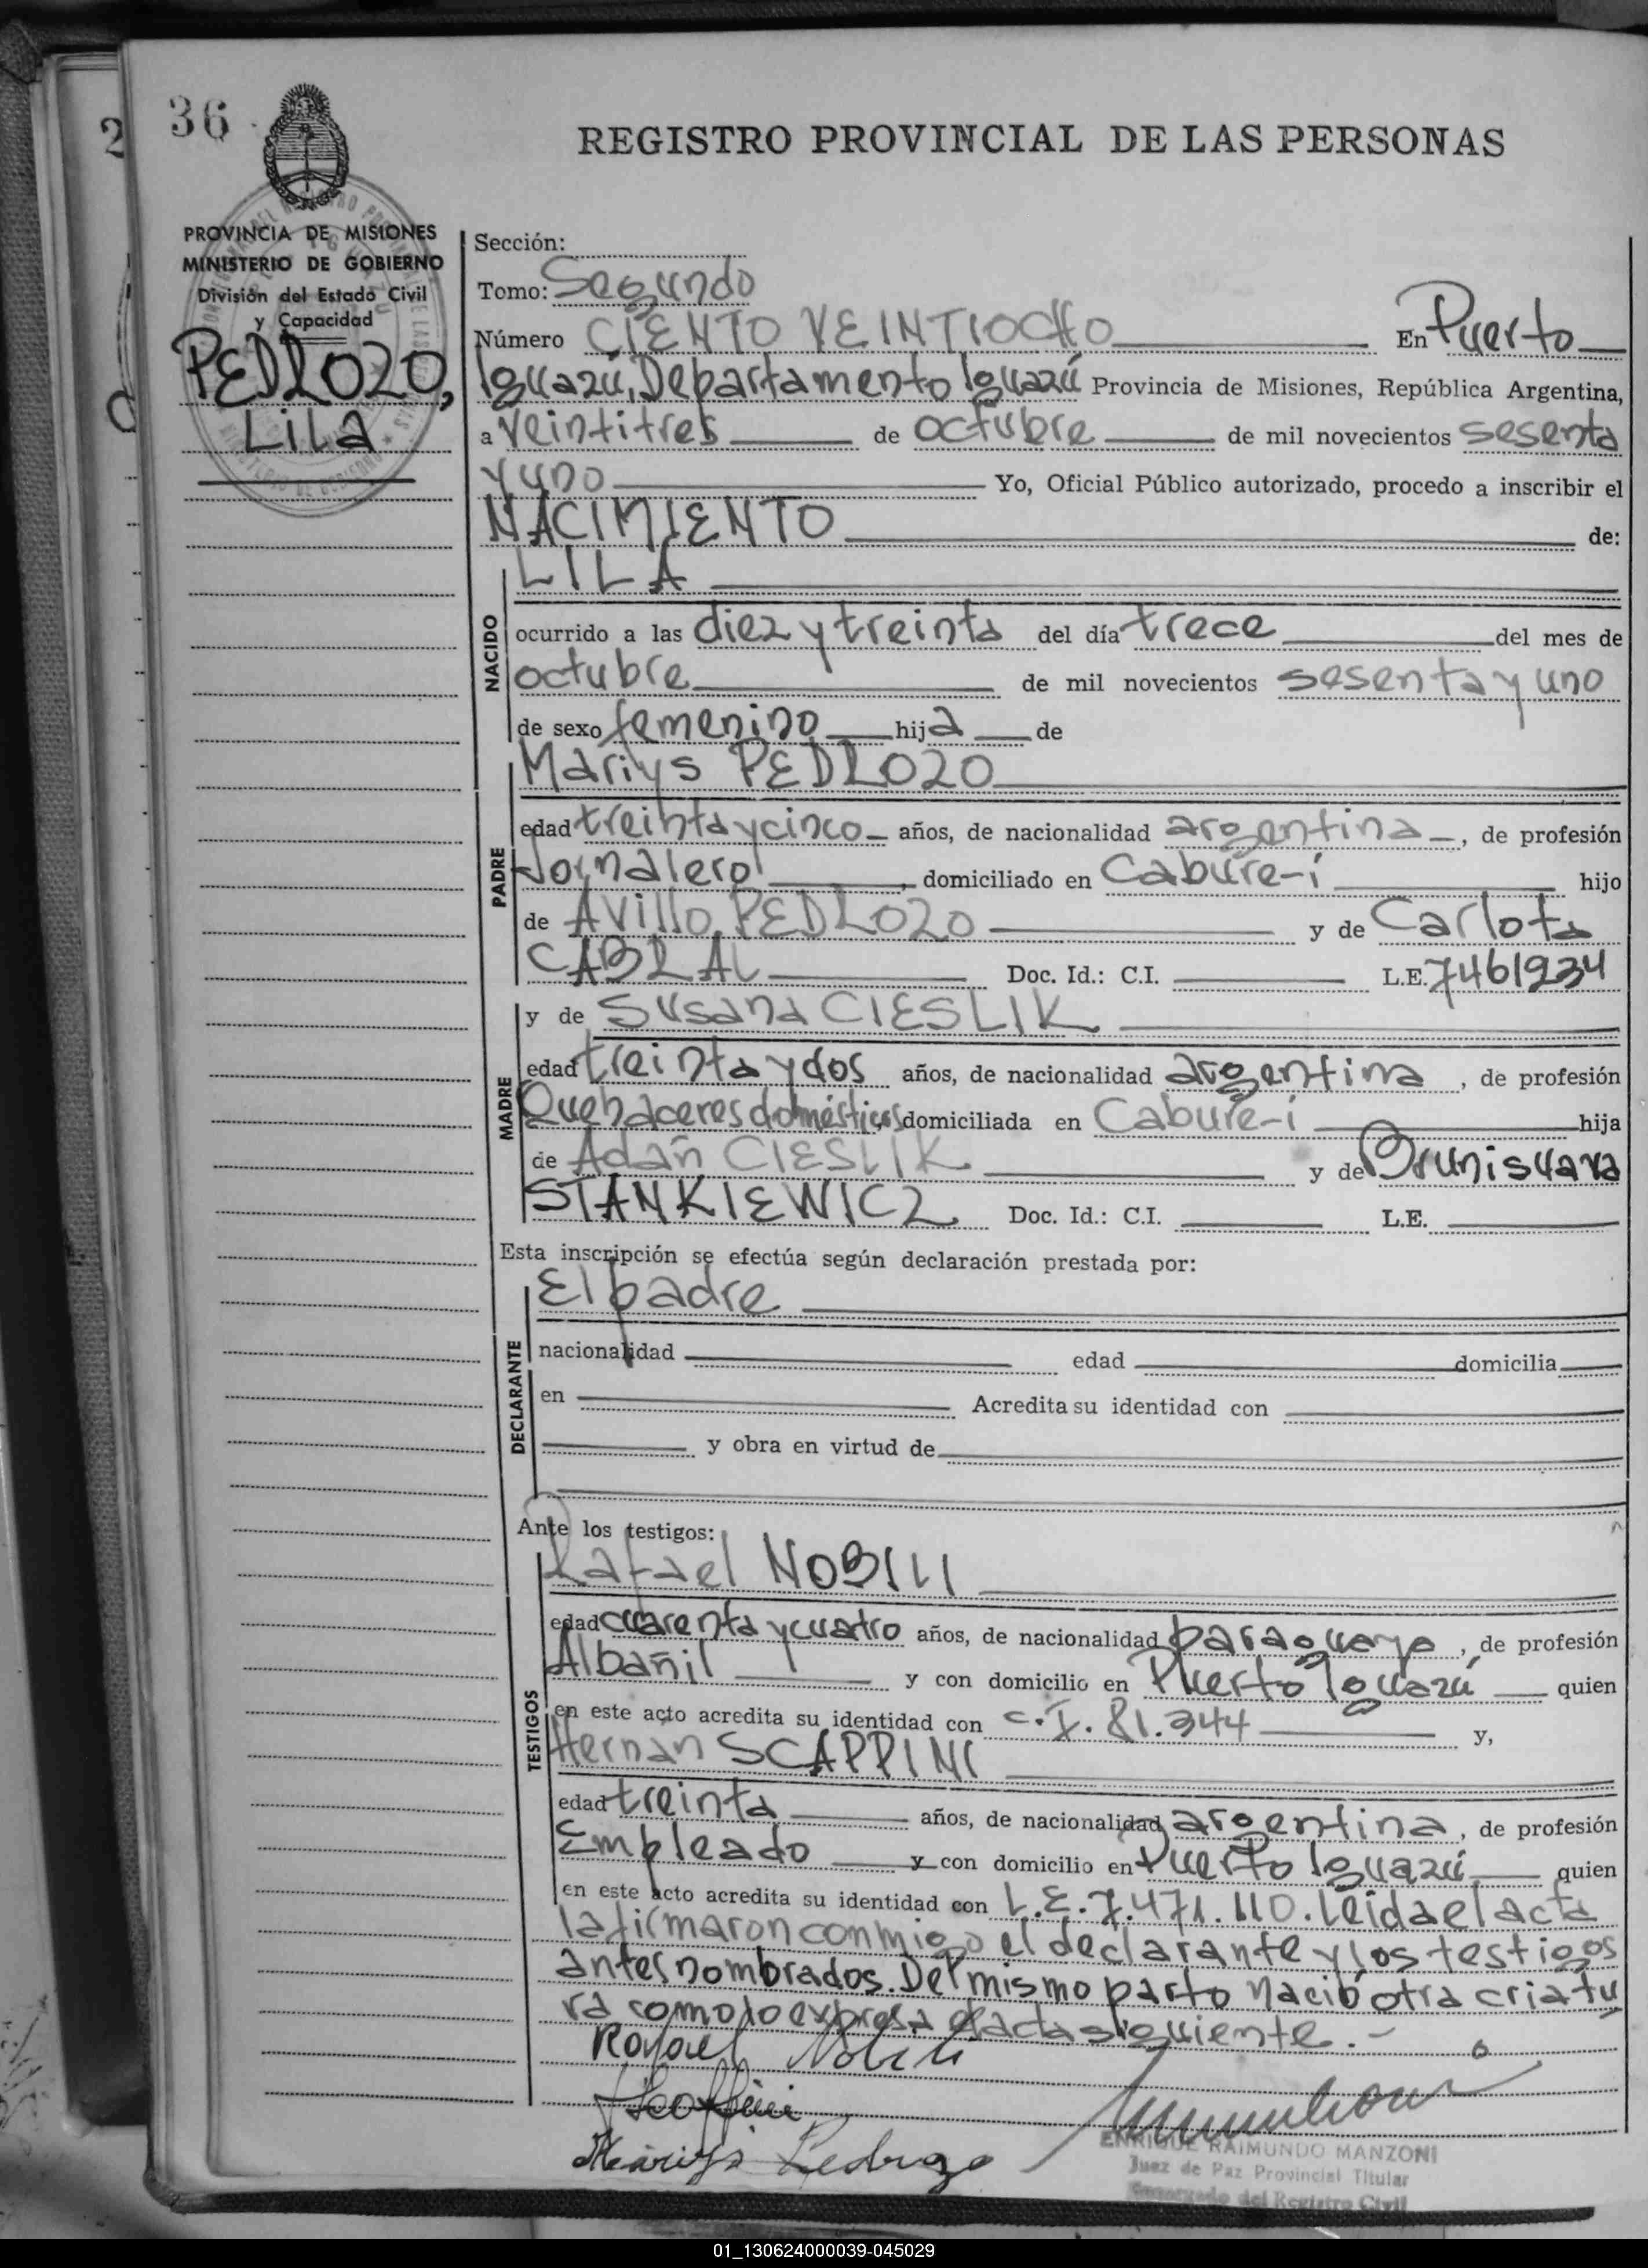 36
REGISTRO PROVINCIAL DE LAS PERSONAS
PROVINCIA DE MISIONES
MINISTERIO DE GOBIERNO
División del Estado Civil
y Capacidad
PEDROZO,
Lila
Sección:
Tomo: Segundo
Número CIENTO VEINTIOCHO En Puerto
Iguazú, Departamento Iguazú Provincia de Misiones, República Argentina,
a veintitres de octubre de mil novecientos sesenta
y uno Yo, Oficial Público autorizado, procedo a inscribir el
NACIMIENTO de:
LILA
NACIDO
ocurrido a las diez y treinta del día trece del mes de
octubre de mil novecientos sesenta y uno
de sexo femenino hija de
Mariys PEDROZO
PADRE
edad treinta y cinco años, de nacionalidad argentina, de profesión
Jornalero, domiciliado en Cabure-í hijo
de Avillo PEDROZO y de Carlota
CABRAL Doc. Id.: C.I. L.E. 7461934
y de Susana CIESLIK
MADRE
edad treinta y dos años, de nacionalidad argentina, de profesión
Quehaceres domésticos domiciliada en Cabure-í hija
de Adán CIESLIK y de Brunisvava
STANKIEWICZ Doc. Id.: C.I. L.E.
Esta inscripción se efectúa según declaración prestada por:
El padre
DECLARANTE
nacionalidad edad domicilia
en Acredita su identidad con
y obra en virtud de
Ante los testigos:
Rafael NOBILI
TESTIGOS
edad cuarenta y cuatro años, de nacionalidad paraguaya, de profesión
Albañil y con domicilio en Puerto Iguazú quien
en este acto acredita su identidad con C.I. 81.344 y,
Hernan SCAPPINI
edad treinta años, de nacionalidad argentina, de profesión
Empleado y con domicilio en Puerto Iguazú quien
en este acto acredita su identidad con L.E. 7.471.110. Leida el acta
la firmaron conmigo el declarante y los testigos
antes nombrados. Del mismo parto nació otra criatu
ra como lo expresa el acta siguiente.-
Rafael Nobili
Mariys Pedrozo
ENRIQUE RAIMUNDO MANZONI
Juez de Paz Provincial Titular
Encargado del Registro Civil
01_130624000039-045029